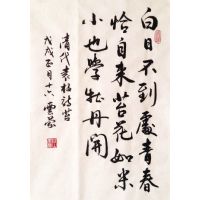 白日不到處青春
恰自来苔花如米
小也學牡丹開
清代袁枚詩苔
戊戌正月十六雲蒙